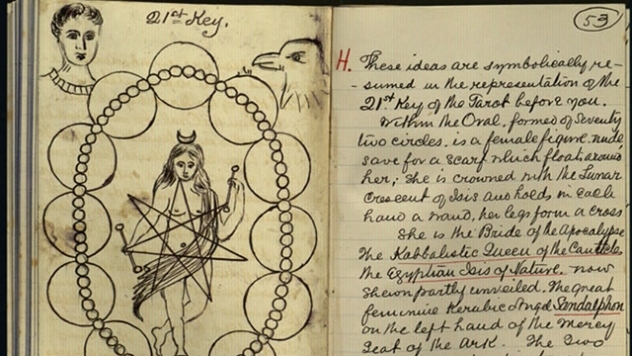 21st Key.
53
H. These ideas are symbolically re-
-sumed in the representation of the
21st Key of the Tarot before you.
Within the Oval, formed of Seventy
two circles, is a female figure, nude,
save for a scarf which floats around
her; She is crowned with the Lunar
Crescent of Isis and holds in each
hand a wand, her legs form a cross
She is the Bride of the Apocalypse
The Kabbalistic Queen of the Canticles,
The Egyptian Isis of Nature, now
shewn partly unveiled, The great
feminine Kerubic Angel Sandalphon
on the left hand of the Mercy
Seat of the Ark. The Two